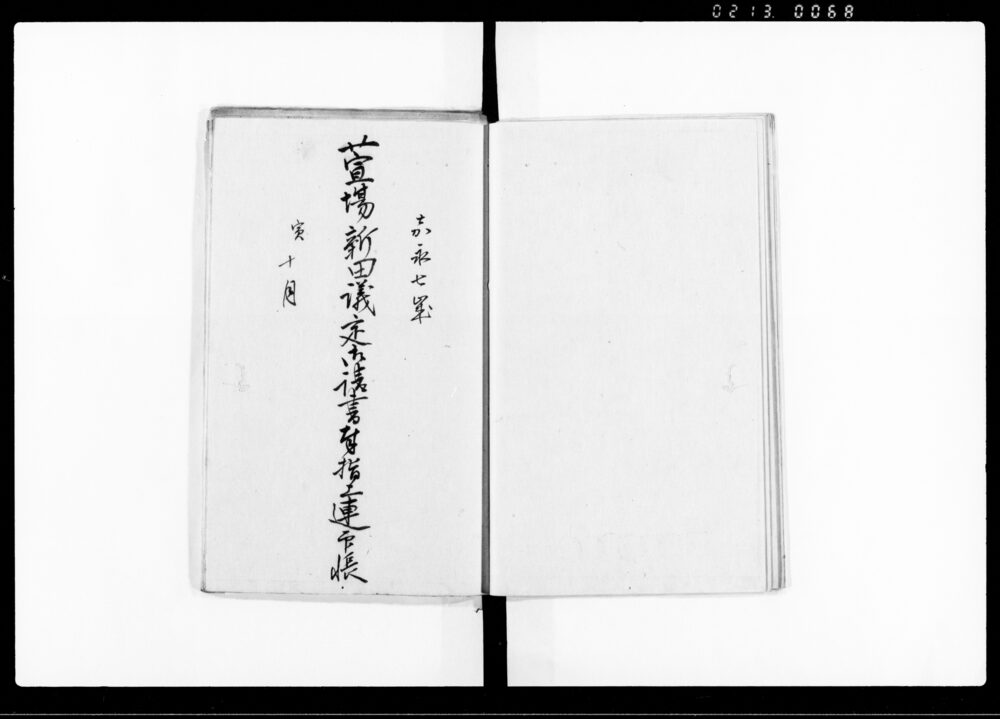 0213. 0068
嘉永七年
萱場新田議定御請書村指上連印帳
寅十月